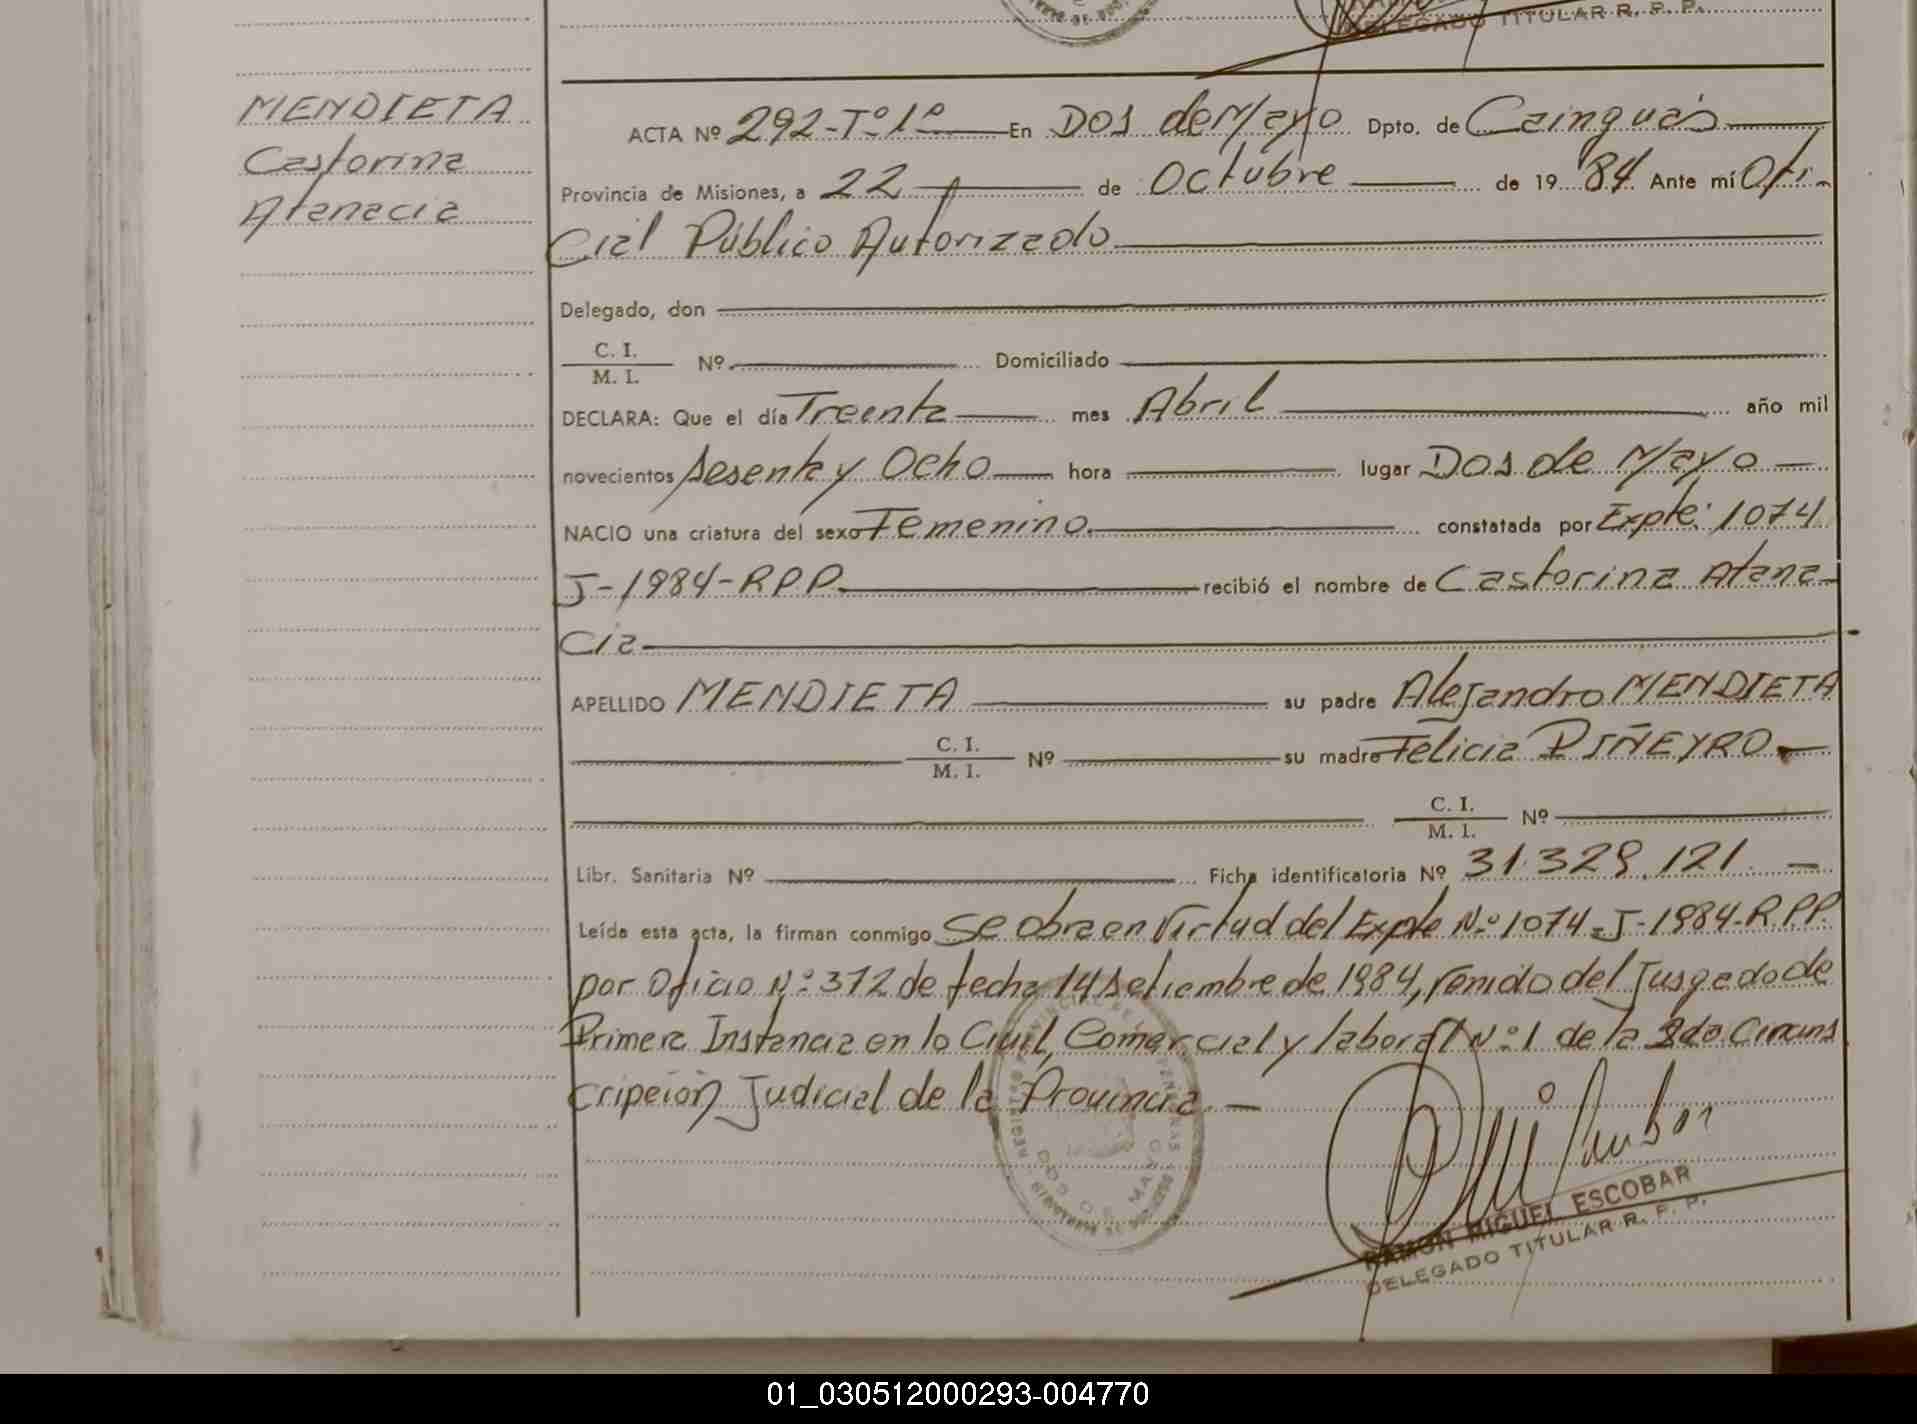 DELEGADO TITULAR R. P. P.
MENDIETA
Castorina
Atanacia
ACTA Nº 292-Tº1º En Dos de Mayo Dpto. de Cainguás
Provincia de Misiones, a 22 de Octubre de 19 84 Ante mí Ofi-
cial Público Autorizado
Delegado, don
C. I.
M. I. Nº Domiciliado
DECLARA: Que el día Treinta mes Abril año mil
novecientos sesenta y Ocho hora lugar Dos de Mayo
NACIO una criatura del sexo Femenino. constatada por Expte: 1074
J-1984-RPP. recibió el nombre de Castorina Atana-
cia
APELLIDO MENDIETA su padre Alejandro MENDIETA
C. I.
M. I. Nº su madre Felicia PIÑEYRO.
C. I.
M. I. Nº
Libr. Sanitaria Nº Ficha identificatoria Nº 31.329.121.
Leída esta acta, la firman conmigo Se obra en Virtud del Expte Nº 1074-J-1984-R.P.P.
por Oficio Nº 372 de fecha 14 setiembre de 1984, venido del Jusgado de
Primera Instancia en lo Ciuil, Comercial y laboral Nº 1 de la 2da Circuns
cripción Judicial de la Prouincia.
DOS DE MAYO
RAMON MIGUEL ESCOBAR
DELEGADO TITULAR R. P. P.
01_030512000293-004770